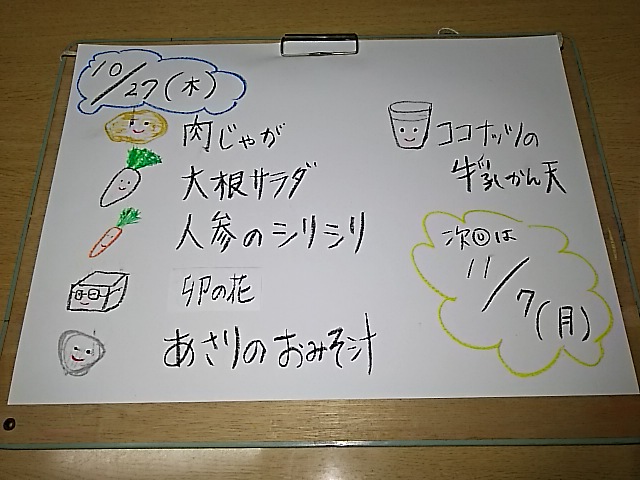 10/27(木)
肉じゃが
大根サラダ
人参のシリシリ
卯の花
あさりのおみそ汁
ココナッツの
牛乳かん天
次回は
11/7(月)